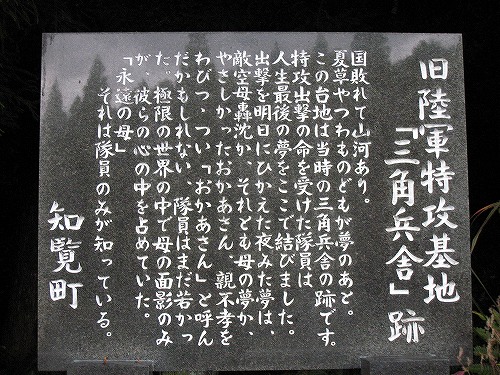 旧陸軍特攻基地
「三角兵舎」跡
国敗れて山河あり。
夏草やつわものどもが夢のあと。
この台地は当時の三角兵舎の跡です。
特攻出撃の命を受けた隊員は
人生最後の夢をここで結びました。
出撃を明日にひかえた夜みた夢は、
敵空母轟沈か、それとも母の夢か、
やさしかったおかあさん、親不孝を
わびつつ、つい「おかあさん」と呼ん
だかもしれない、隊員はまだ若かっ
た。極限の世界の中で母の面影のみ
が、彼らの心の中を占めていた。
「永遠の母」
それは隊員のみが知っている。
知覧町